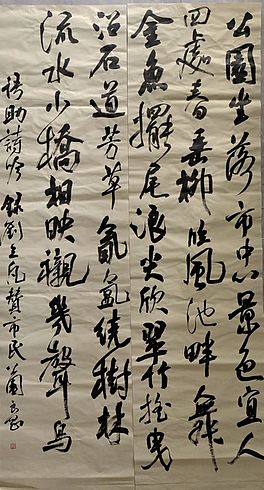 公園坐落市中心景色宜人
四處春垂柳臨風池畔舞
金魚擺尾浪尖欣翠竹搖曳
沿石道芳草氤氳繞樹林
流水小橋相映襯幾聲鳥
語助詩吟 錄劉贊市民